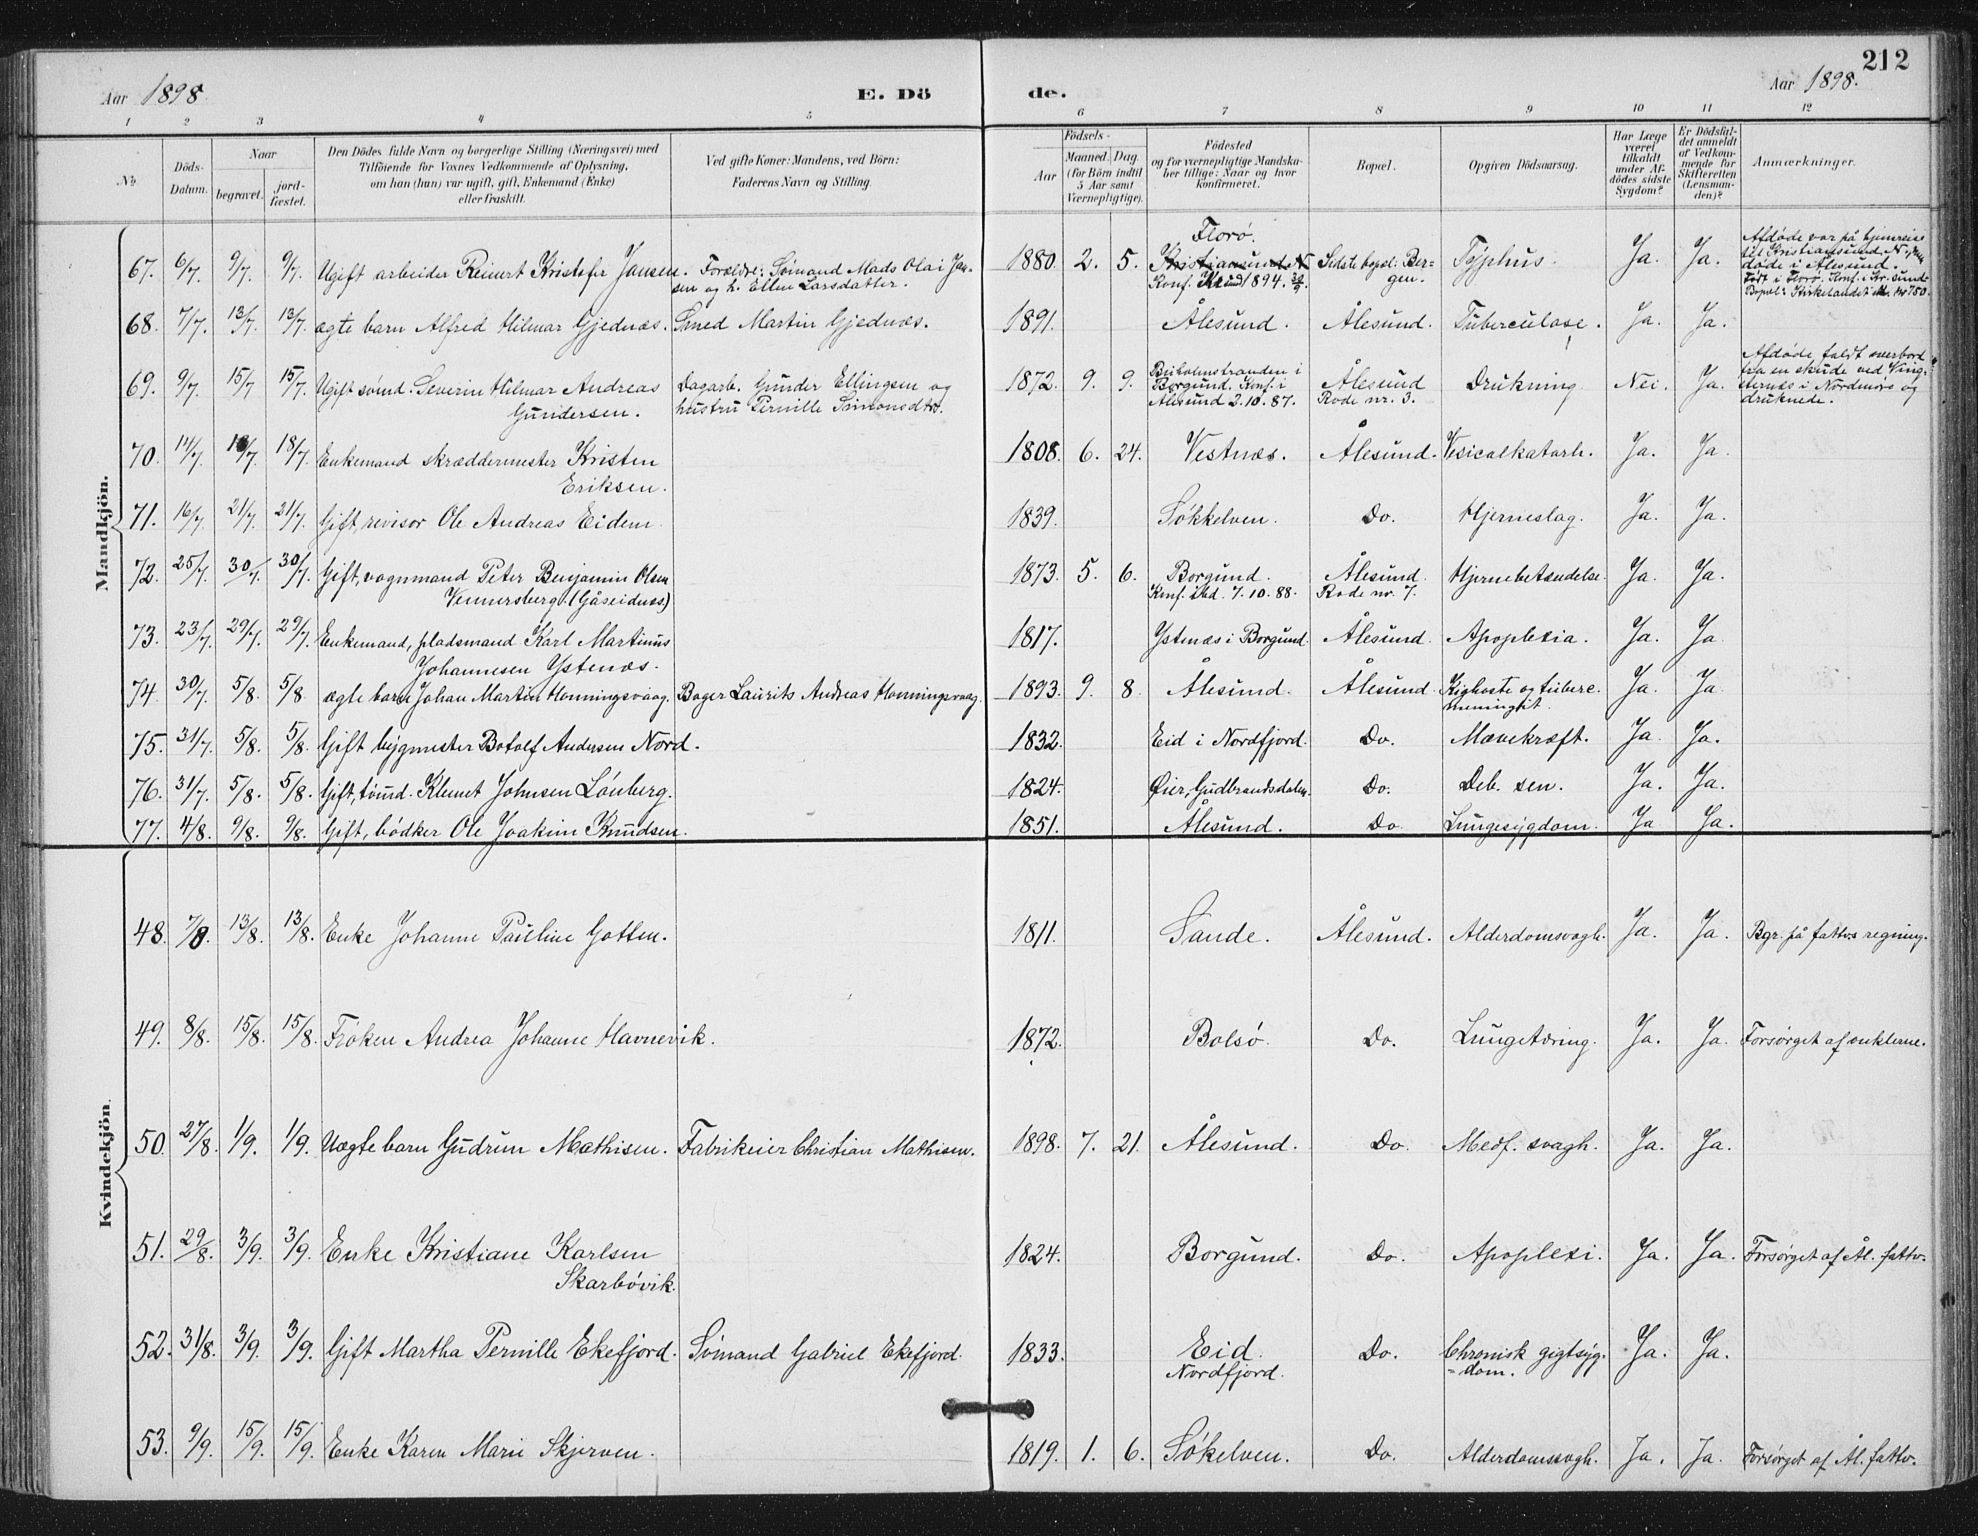 212
Aar 1898. E. Dö de. Aar 1898.
1 2 3 4 5 6 7 8 9 10 11 12
No.
Döds-Datum.
Naar
begravet.
jord-fæstet.
Den Dödes fulde Navn og borgerlige Stilling (Næringsvei) med
Tilföiende for Voxnes Vedkommende af Oplysning,
om han (hun) var ugift, gift, Enkemand (Enke)
eller fraskilt.
Ved gifte Koner: Mandens, ved Börn:
Faderens Navn og Stilling.
Födsels-
Aar
Maaned. Dag.
(for Börn indtil
5 Aar samt
Værnepligtige).
Födested
og for værnepligtige Mandska-
ber tillige: Naar og hvor
konfirmeret.
Bopæl.
Opgiven Dödsaarsag.
Har Læge
været
tilkaldt
under Af-
dödes sidste
Sygdom?
Er Dödsfal-
det anmeldt
af Vedkom-
mende for
Skifteretten
(Lensman-
den)?
Anmærkninger.
Mandkjön.
67. 6/7. 9/7. 9/7. Ugift arbeider Reinert Kristofer Jansen. Forældre: Sömand Mads Olai Jan-
sen og h. Ellen Larsdatter. 1880. 2. 5. Florø.
Kristiansund N
Konf. Kr.sund 1894. Sidste bopæl: Ber-
gen. Typhus. Ja. Ja. Afdøde var på hjemreise
til Kristiansund N, men
døde i Ålesund.
Født i Florø. Konf. i Kr.sund
Bopæl: Kirkelandet nr 750.
68. 7/7. 13/7. 13/7. ægte barn Alfred Hilmar Gjednæs. Smed Martin Gjednæs. 1891. Ålesund. Ålesund. Tuberculose. Ja. Ja.
69. 9/7. 15/7 15/7. Ugift sømd. Severin Hilmar Andreas
Gundersen. Dagarb. Gunder Ellingsen og
hustru Pernille Simonsdtr. 1872. 9. 9. Buholmstranden i
Borgund. Konf. i
Ålesund 2.10.87. Ålesund
Rode nr. 3. Drukning. Nei. Ja. Afdøde faldt overbord
fra en skude ved Ving-
sternes i Nordmøre og
druknede.
70. 14/7. 18/7. 18/7. Enkemand skræddermester Kristen
Eriksen. 1808. 6. 24. Vestnæs. Ålesund. Vesicalkatarh. Ja. Ja.
71. 16/7. 21/7. 21/7. Gift, revisor Ole Andreas Eidem. 1839. Søkkelven. Do. Hjerneslag. Ja. Ja.
72. 25/7. 30/7. 30/7. Gift, vognmand Peter Benjamin Olsen
Vennersberg (Gåseidnes) 1873. 5. 6. Borgund.
Konf. ibid. 7.10.88. Ålesund.
Rode nr. 7. Hjernebetændelse. Ja. Ja.
73. 23/7. 29/7. 29/7. Enkemand, pladsmand Karl Martinus
Johannesen Ystenæs. 1817. Ystenæs i Borgund. Ålesund. Apoplexia. Ja. Ja.
74. 30/7. 5/8. 5/8. ægte barn Johan Martin Honningsvaag. Bager Laurits Andreas Honningsvaag. 1893. 9. 8. Ålesund. Ålesund. Kighoste og tuberc.
meningit. Ja. Ja.
75. 31/7. 5/8. 5/8. Gift bygmester Botolf Andersen Nord. 1832. Eid i Nordfjord. Do. Mavekræft. Ja. Ja.
76. 31/7. 5/8. 5/8. Gift, tømd. Klemet Johnsen Lönberg. 1824. Øier, Gudbrandsdalen. Do. Deb. sen. Ja. Ja.
77. 4/8. 9/8. 9/8. Gift, bødker Ole Joakim Knudsen. 1851. Ålesund. Do. Lungesygdom. Ja Ja.
Kvindekjön.
48. 7/8. 13/8. 13/8. Enke Johanne Pauline Gotten. 1811. Sande. Ålesund. Alderdomsvagh. Ja. Ja. Bgr. på fattvs regning.
49. 8/8. 15/8. 15/8. Frøken Andrea Johanne Havnevik. 1872. Bolsø. Do. Lungetæring. Ja. Ja. Forsørget af onklerne.
50. 27/8. 1/9. 1/9. Uægte barn Gudrun Mathisen. Fabrikeier Christian Mathisen. 1898. 7. 21. Ålesund. Do. Medf. svagh. Ja. Ja.
51. 29/8. 3/9. 3/9. Enke Kristiane Karlsen
Skarbøvik. 1824. Borgund. Do. Apoplexi. Ja. Ja. Forsørget af Ål. fattv.
52. 31/8. 3/9. 3/9. Gift Martha Pernille Ekefjord. Sömand Gabriel Ekefjord. 1833. Eid.
Nordfjord. Do. Chronisk gigtsyg-
=dom. Ja. Ja.
53. 9/9. 15/9. 15/9. Enke Karen Marie Skjerven. 1819. 1. 6. Søkelven. Do. Alderdomssvagh. Ja. Ja. Forsørget af Ål. fattv.